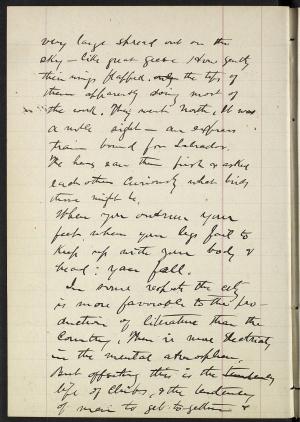 very large spread out on the
sky — like great geese. How gently
their wings flapped. only the tips of
them apparently doing most of
the work. They went North, It was
a noble sight — an express
train bound for Labrador.
The hens saw them first & asked
each other curiously what birds
those might be.
When you outrun your
feet, when your legs fail to
keep up with your body &
head: you fall.
In some respects the city
is more favorable to the pro-
duction of literature than the
Country, There is more electricity
in the mental atmosphere.
But offsetting this is the tendency
life of Clubs, & the tendency
of men to get together &